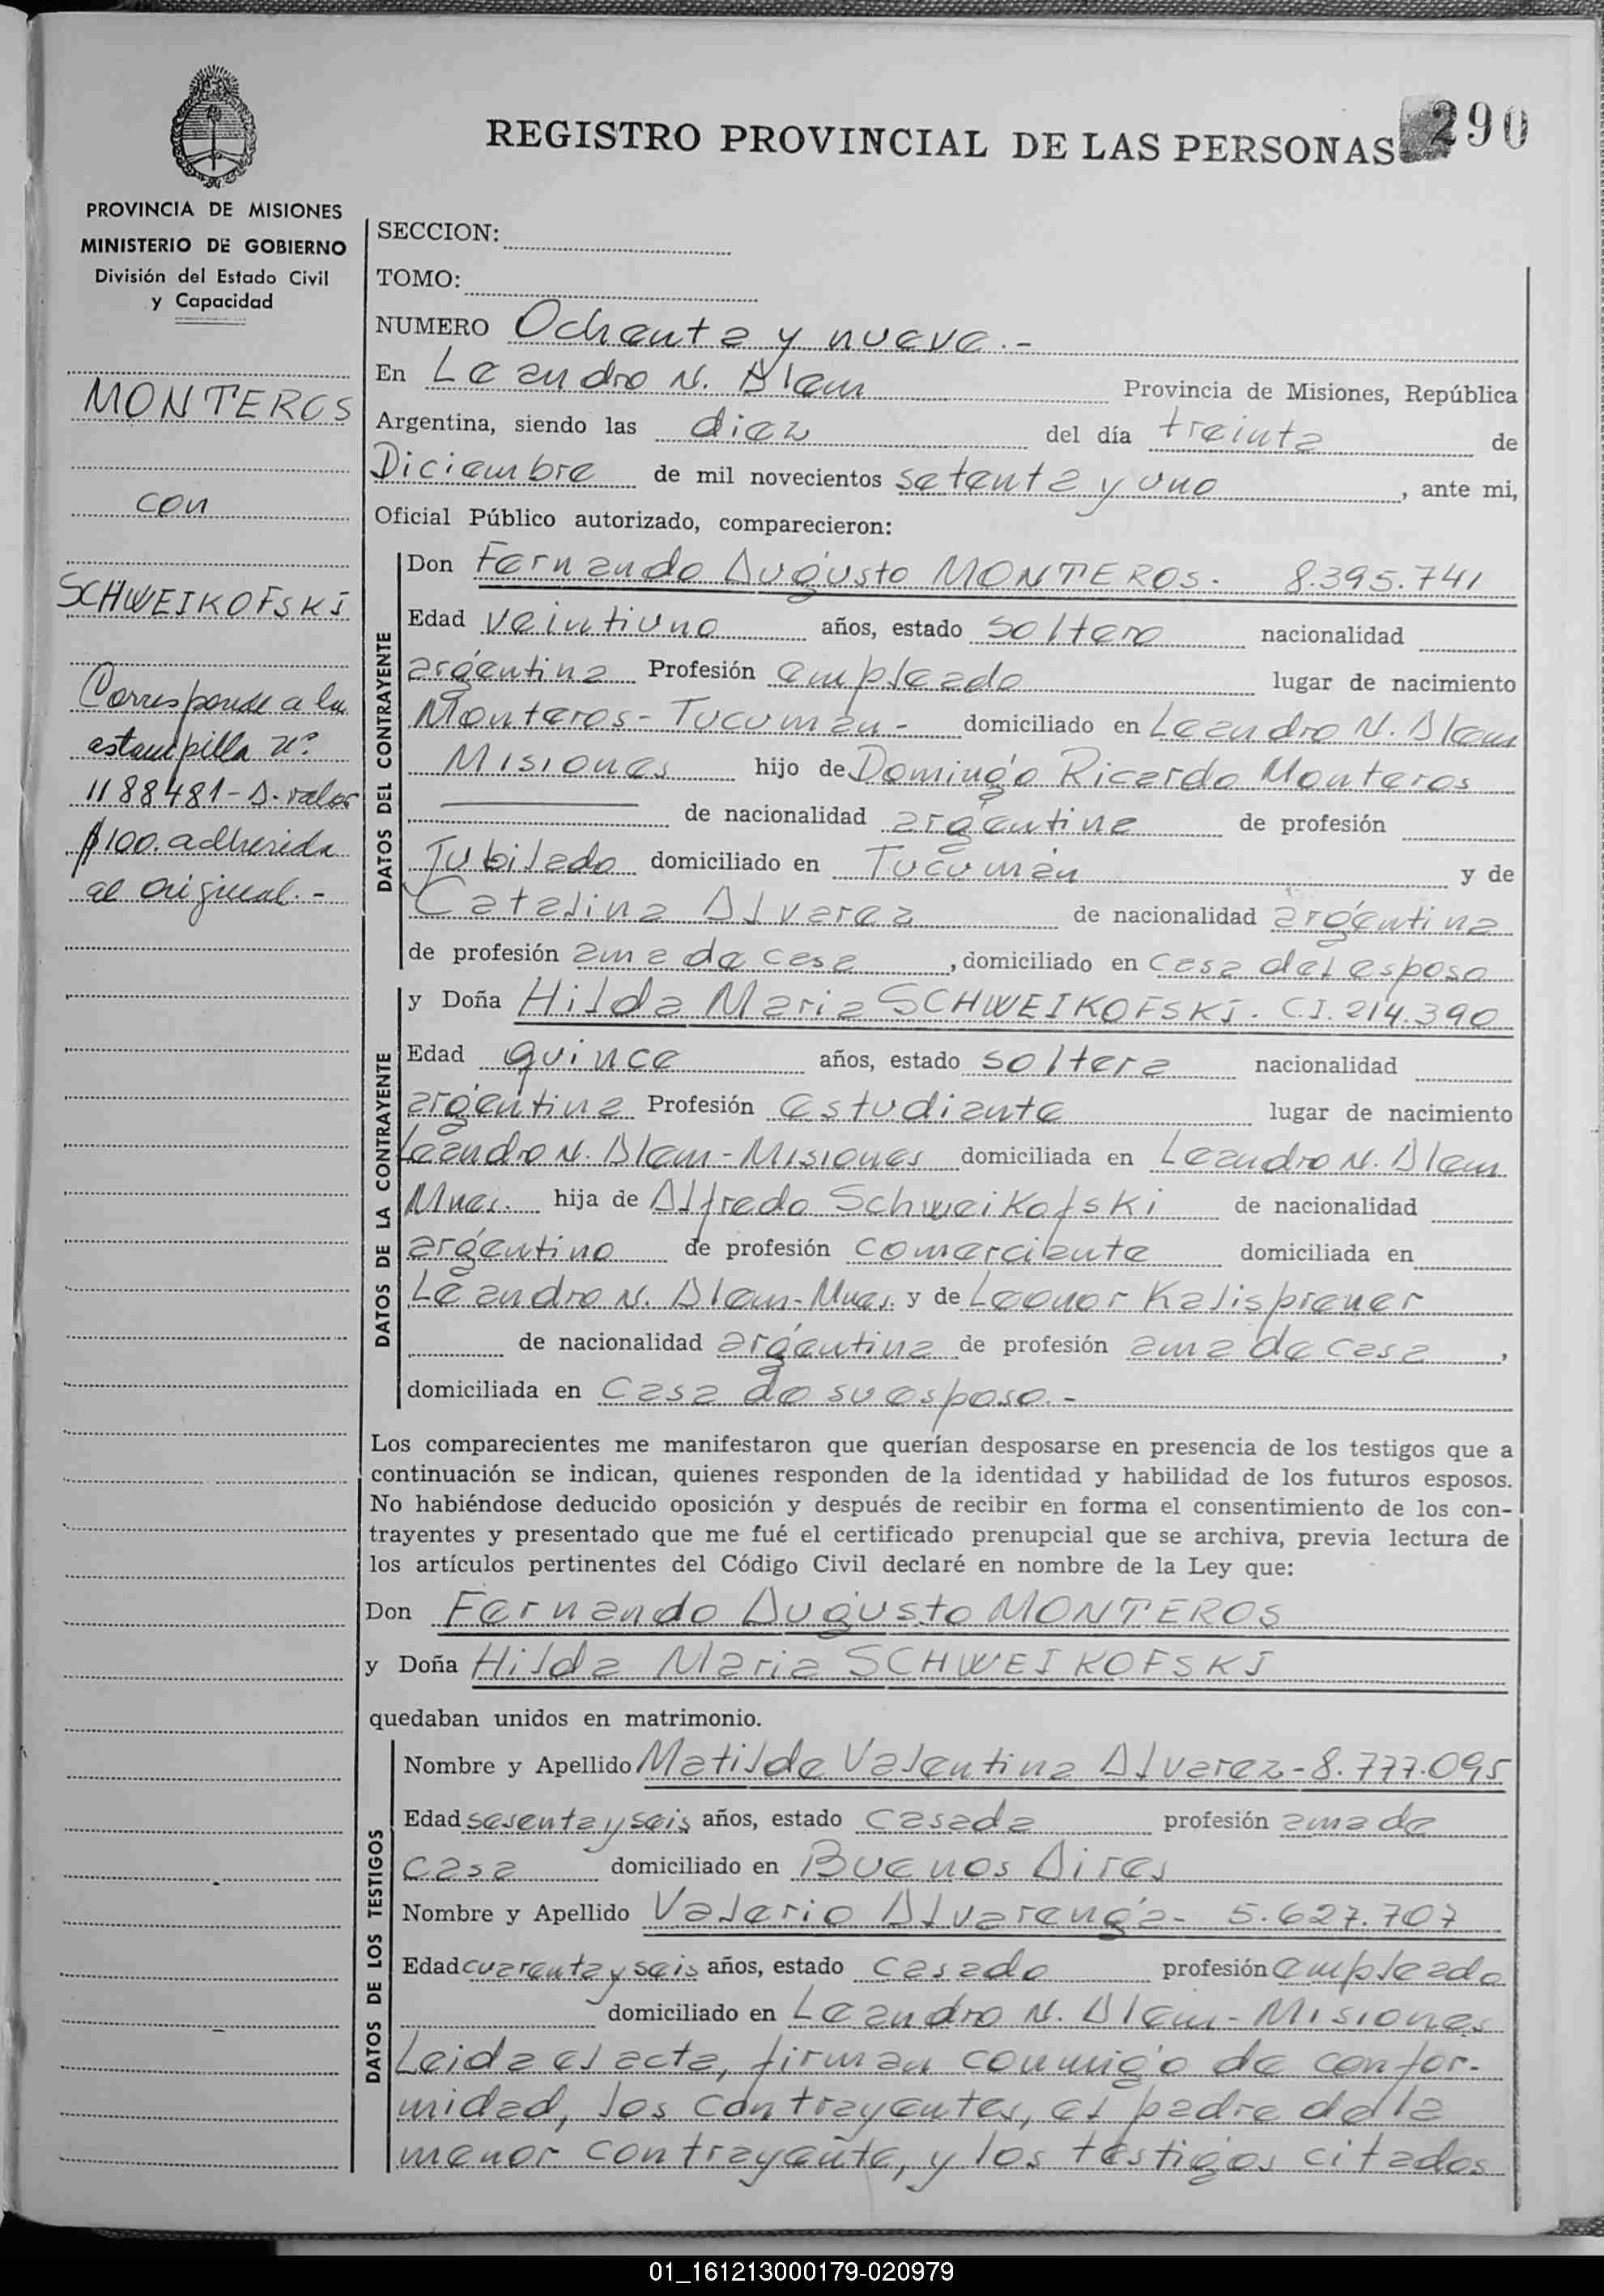 290
REGISTRO PROVINCIAL DE LAS PERSONAS
PROVINCIA DE MISIONES
MINISTERIO DE GOBIERNO
División del Estado Civil
y Capacidad
MONTEROS
con
SCHWEIKOFSKI
Corresponde a la
estampilla nº
1188481-A. valor
$100. adherida
al original.-
SECCION:
TOMO:
NUMERO Ochenta y nueve.-
En Leandro N. Alem Provincia de Misiones, República
Argentina, siendo las diez del día treinta de
Diciembre de mil novecientos setenta y uno, ante mi,
Oficial Público autorizado, comparecieron:
DATOS DEL CONTRAYENTE
Don Fernando Augusto MONTEROS. 8.395.741
Edad veintiuno años, estado soltero nacionalidad
argentina Profesión empleado lugar de nacimiento
Monteros-Tucumán- domiciliado en Leandro N. Alem
Misiones hijo de Domingo Ricardo Monteros
de nacionalidad argentina de profesión
Jubilado domiciliado en Tucumán y de
Catalina Alvarez de nacionalidad argentina
de profesión ama de casa, domiciliado en casa del esposo
DATOS DE LA CONTRAYENTE
y Doña Hilda Maria SCHWEIKOFSKI. C.I. 214.390
Edad quince años, estado soltera nacionalidad
argentina Profesión estudiante lugar de nacimiento
Leandro N. Alem-Misiones domiciliada en Leandro N. Alem
Mnes. hija de Alfredo Schweikofski de nacionalidad
argentino de profesión comerciante domiciliada en
Leandro N. Alem-Mnes. y de Leonor Kalisprener
de nacionalidad argentina de profesión ama de casa,
domiciliada en Casa de su esposo.-
Los comparecientes me manifestaron que querían desposarse en presencia de los testigos que a
continuación se indican, quienes responden de la identidad y habilidad de los futuros esposos.
No habiéndose deducido oposición y después de recibir en forma el consentimiento de los con-
trayentes y presentado que me fué el certificado prenupcial que se archiva, previa lectura de
los artículos pertinentes del Código Civil declaré en nombre de la Ley que:
Don Fernando Augusto MONTEROS
y Doña Hilda Maria SCHWEIKOFSKI
quedaban unidos en matrimonio.
DATOS DE LOS TESTIGOS
Nombre y Apellido Matilde Valentina Alvarez-8.777.095
Edad sesenta y seis años, estado casada profesión ama de
casa domiciliado en Buenos Aires
Nombre y Apellido Valerio Alvarenga- 5.627.707
Edad cuarenta y seis años, estado casado profesión empleado
domiciliado en Leandro N. Alem-Misiones
Leida el acta, firman conmigo de confor-
midad, los contrayentes, el padre de la
menor contrayente, y los testigos citados
01_161213000179-020979